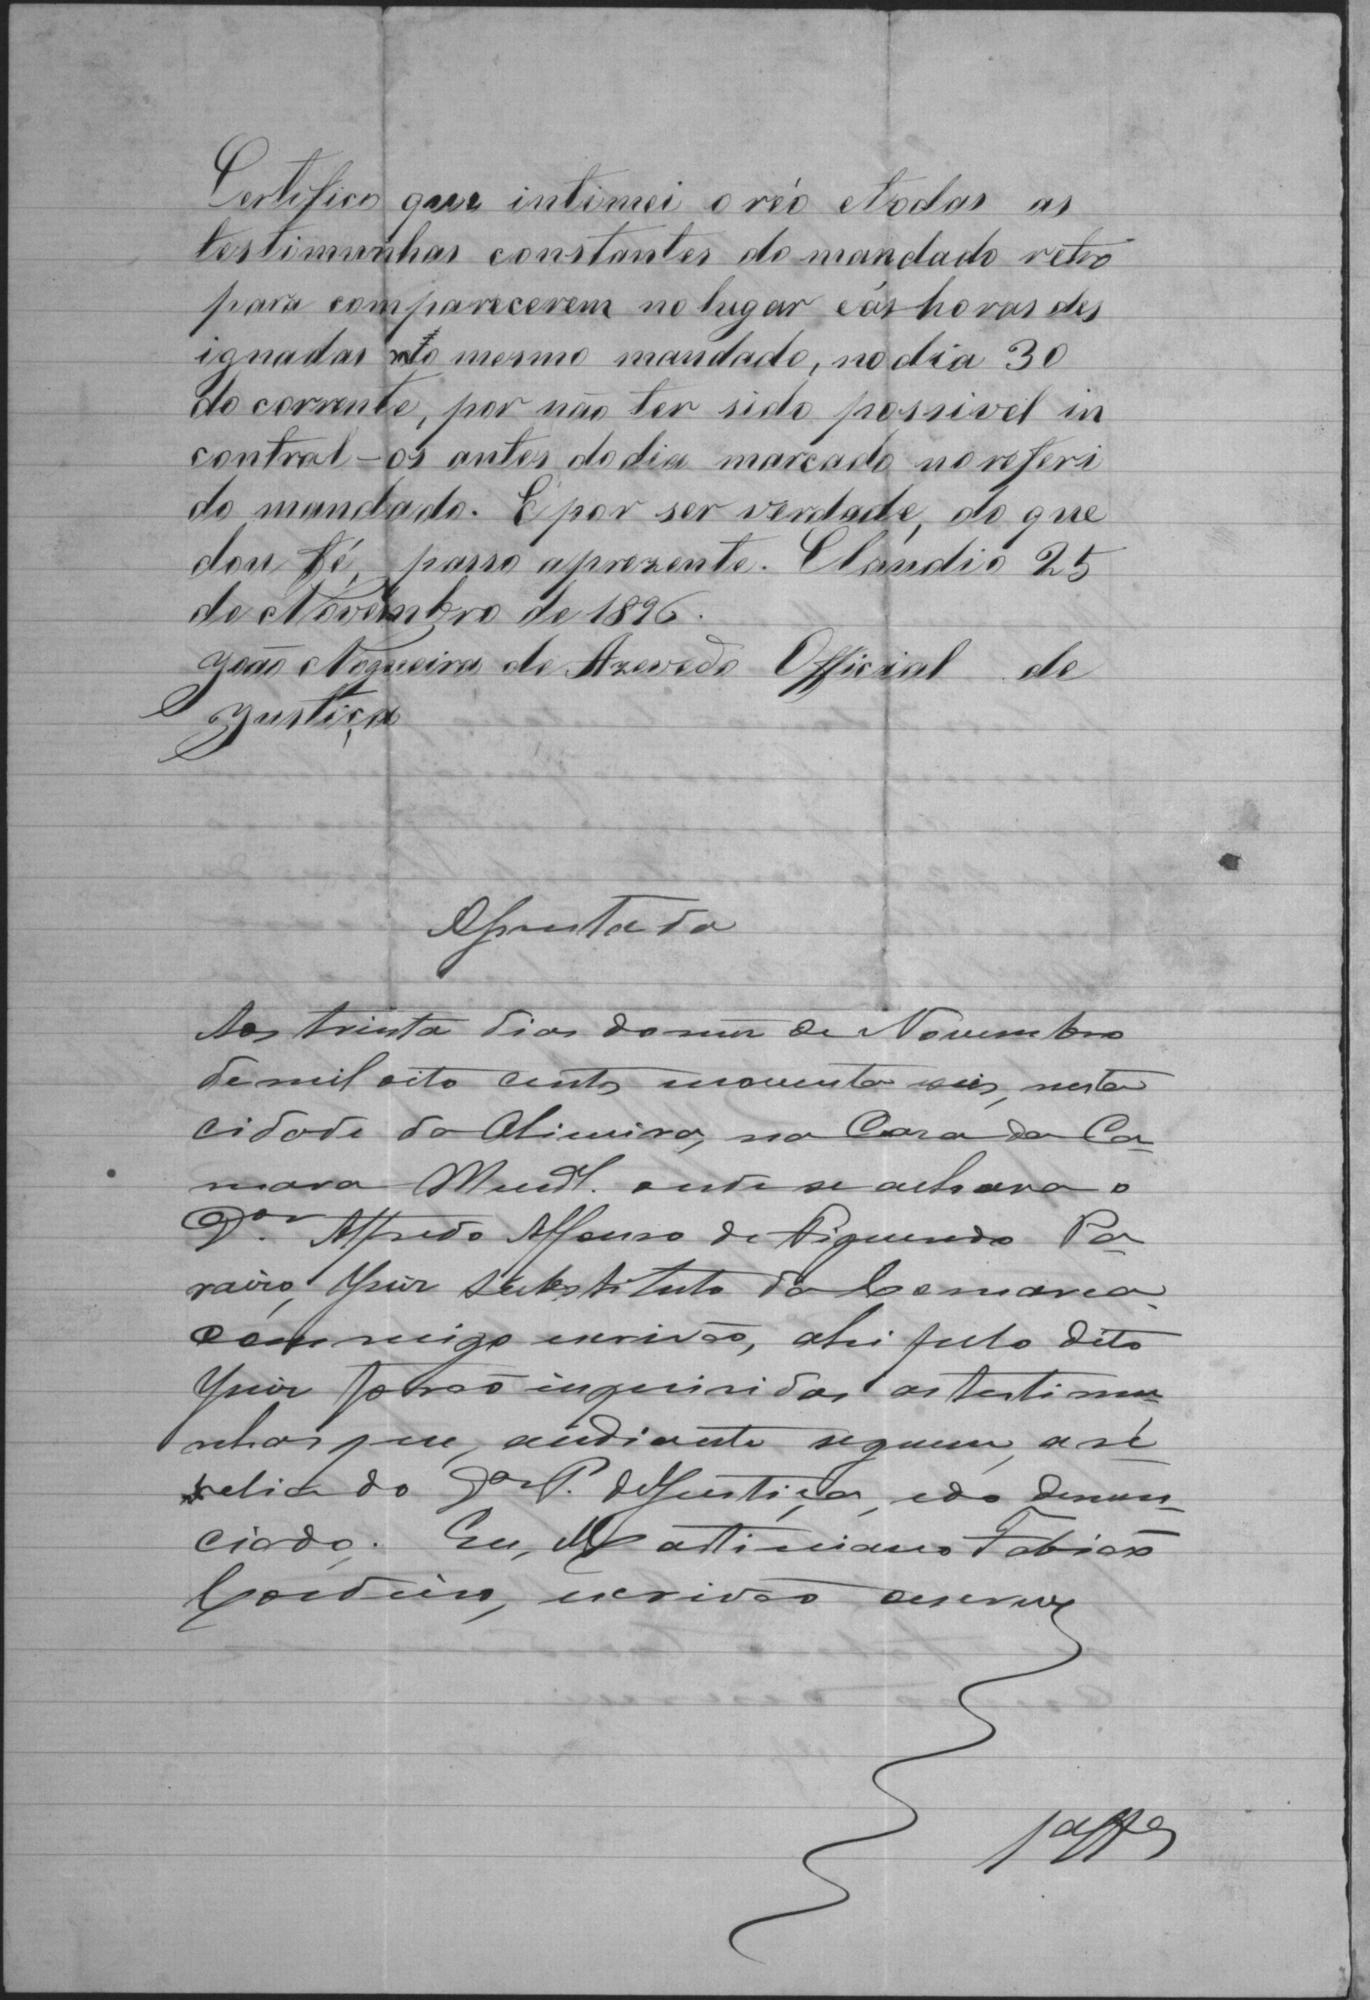 Certifico que intimei o réo e todas as
testimunhas constantes do mandado retro
para comparecerem no lugar e ás horas des
ignadas no mesmo mandado, no dia 30
do corrente, por não ter sido possivel in
contral-os antes do dia marcado no referi
do mandado. E por ser verdade, do que
dou fé, passo a prezente. Claudio 25
de Novembro de 1896.
João Nogueira de Azevedo Official de
Justiça
Assentada
Aos trinta dias do mez de Novembro
de mil oito centos noventa seis, nesta
cidade da Oliveira, na Casa da Ca-
mara Mun.al. onde se achava o
D.or Alfredo Affonso de Figueredo Pa-
raiso, Juiz Substituto da Comarca
commigo escrivão, ahi pelo dito
Juiz forão inqueridas as testimu-
nhas que adiante seguem, a ré-
velia do D.or P. de Justiça, e do denun-
ciado. Eu, Martiniano Fabião
Cordeiro, escrivão escrevy